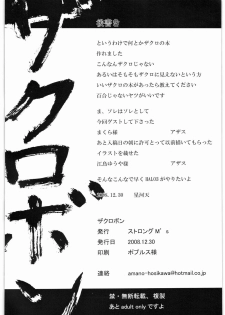 ザクロボン
後書き
というわけで何とかザクロの本
作れました
こんなんザクロじゃない
あるいはそもそもザクロに見えないという方
いいザクロの本があったら教えてください
百合じゃないヤツがいいです
ま、ソレはソレとして
今回ゲストして下さった
まくら様 アザス
あと入稿日の前に許可とって以前描いてもらった
イラストを載せた
江島ゆうや様 アザス
そんなこんなで早くBALO3がやりたいよ
2008.12.30 星河天
ザクロボン
発行 ストロングM's
発行日 2008.12.30
印刷 ポプルス様
連絡 amano-hosikawa@hotmail.co.jp
禁・無断転載、複製
あとadult onlyですよ